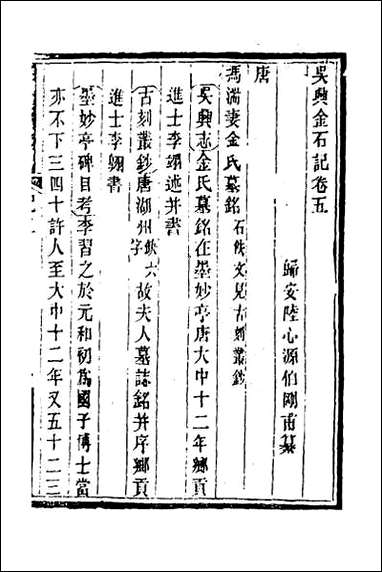 吳興金石記卷五
歸安陸心源伯剛甫纂
唐
馮湍妻金氏墓銘石佚文見古刻叢鈔
吳興志金氏墓銘在墨妙亭唐大中十二年鄉貢
進士李翱述并書
古刻叢鈔唐湖州缺六字故夫人墓誌銘并序鄉貢
進士李翱書
墨妙亭碑目考李習之於元和初爲國子博士當
亦不下三四十許人至大中十二年又五十二三